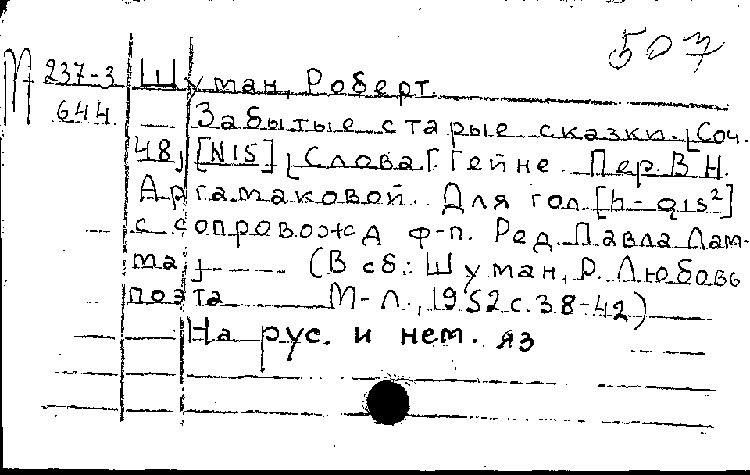 507
М 237-3 Шуман, Роберт.
644 Забытые старые сказки. [Соч.
48, [N15] [Слова Г. Гейне. Пер. В. Н.
Аргамаковой. Для гол. [h-gis²]
с сопровожд ф-п. Ред. Павла Лам-
ма] (В сб.: Шуман, Р. Любовь
поэта М-Л., 1952 с. 38-42)
На рус. и нем. яз